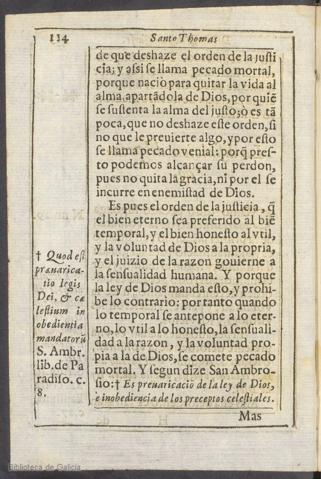 114
Santo Thomas
de que deshaze el orden de la justi
cia; y assi se llama pecado mortal,
porque naciò para quitar la vida al
alma, apartādola de Dios, por quiē
se sustenta la alma del justo; ò es tā
poca, que no deshaze este orden, si
no que le preuierte algo, y por esto
se llama pecado venial: porq̃ pres-
to podemos alcançar su perdon,
pues no quita la gracia, ni por el se
incurre en enemistad de Dios.
Es pues el orden de la justicia, q̃
el bien eterno sea preferido al biē
temporal, y el bien honesto al vtil,
y la voluntad de Dios a la propria,
y el juizio de la razon gouierne a
la sensualidad humana. Y porque
la ley de Dios manda esto, y prohi-
be lo contrario: por tanto quando
lo temporal se antepone a lo eter-
no, lo vtil a lo honesto, la sensuali-
dad a la razon, y la voluntad pro-
pia a la de Dios, se comete pecado
mortal. Y segun dize San Ambro-
sio: † Es preuaricaciō de la ley de Dios,
e inobediencia de los preceptos celestiales.
Mas
† Quod est
præuarica-
tio legis
Dei, & cæ
lestium in
obedientia
mandatorū
S. Ambr.
lib. de Pa
radiso. c.
8.
Biblioteca de Galicia